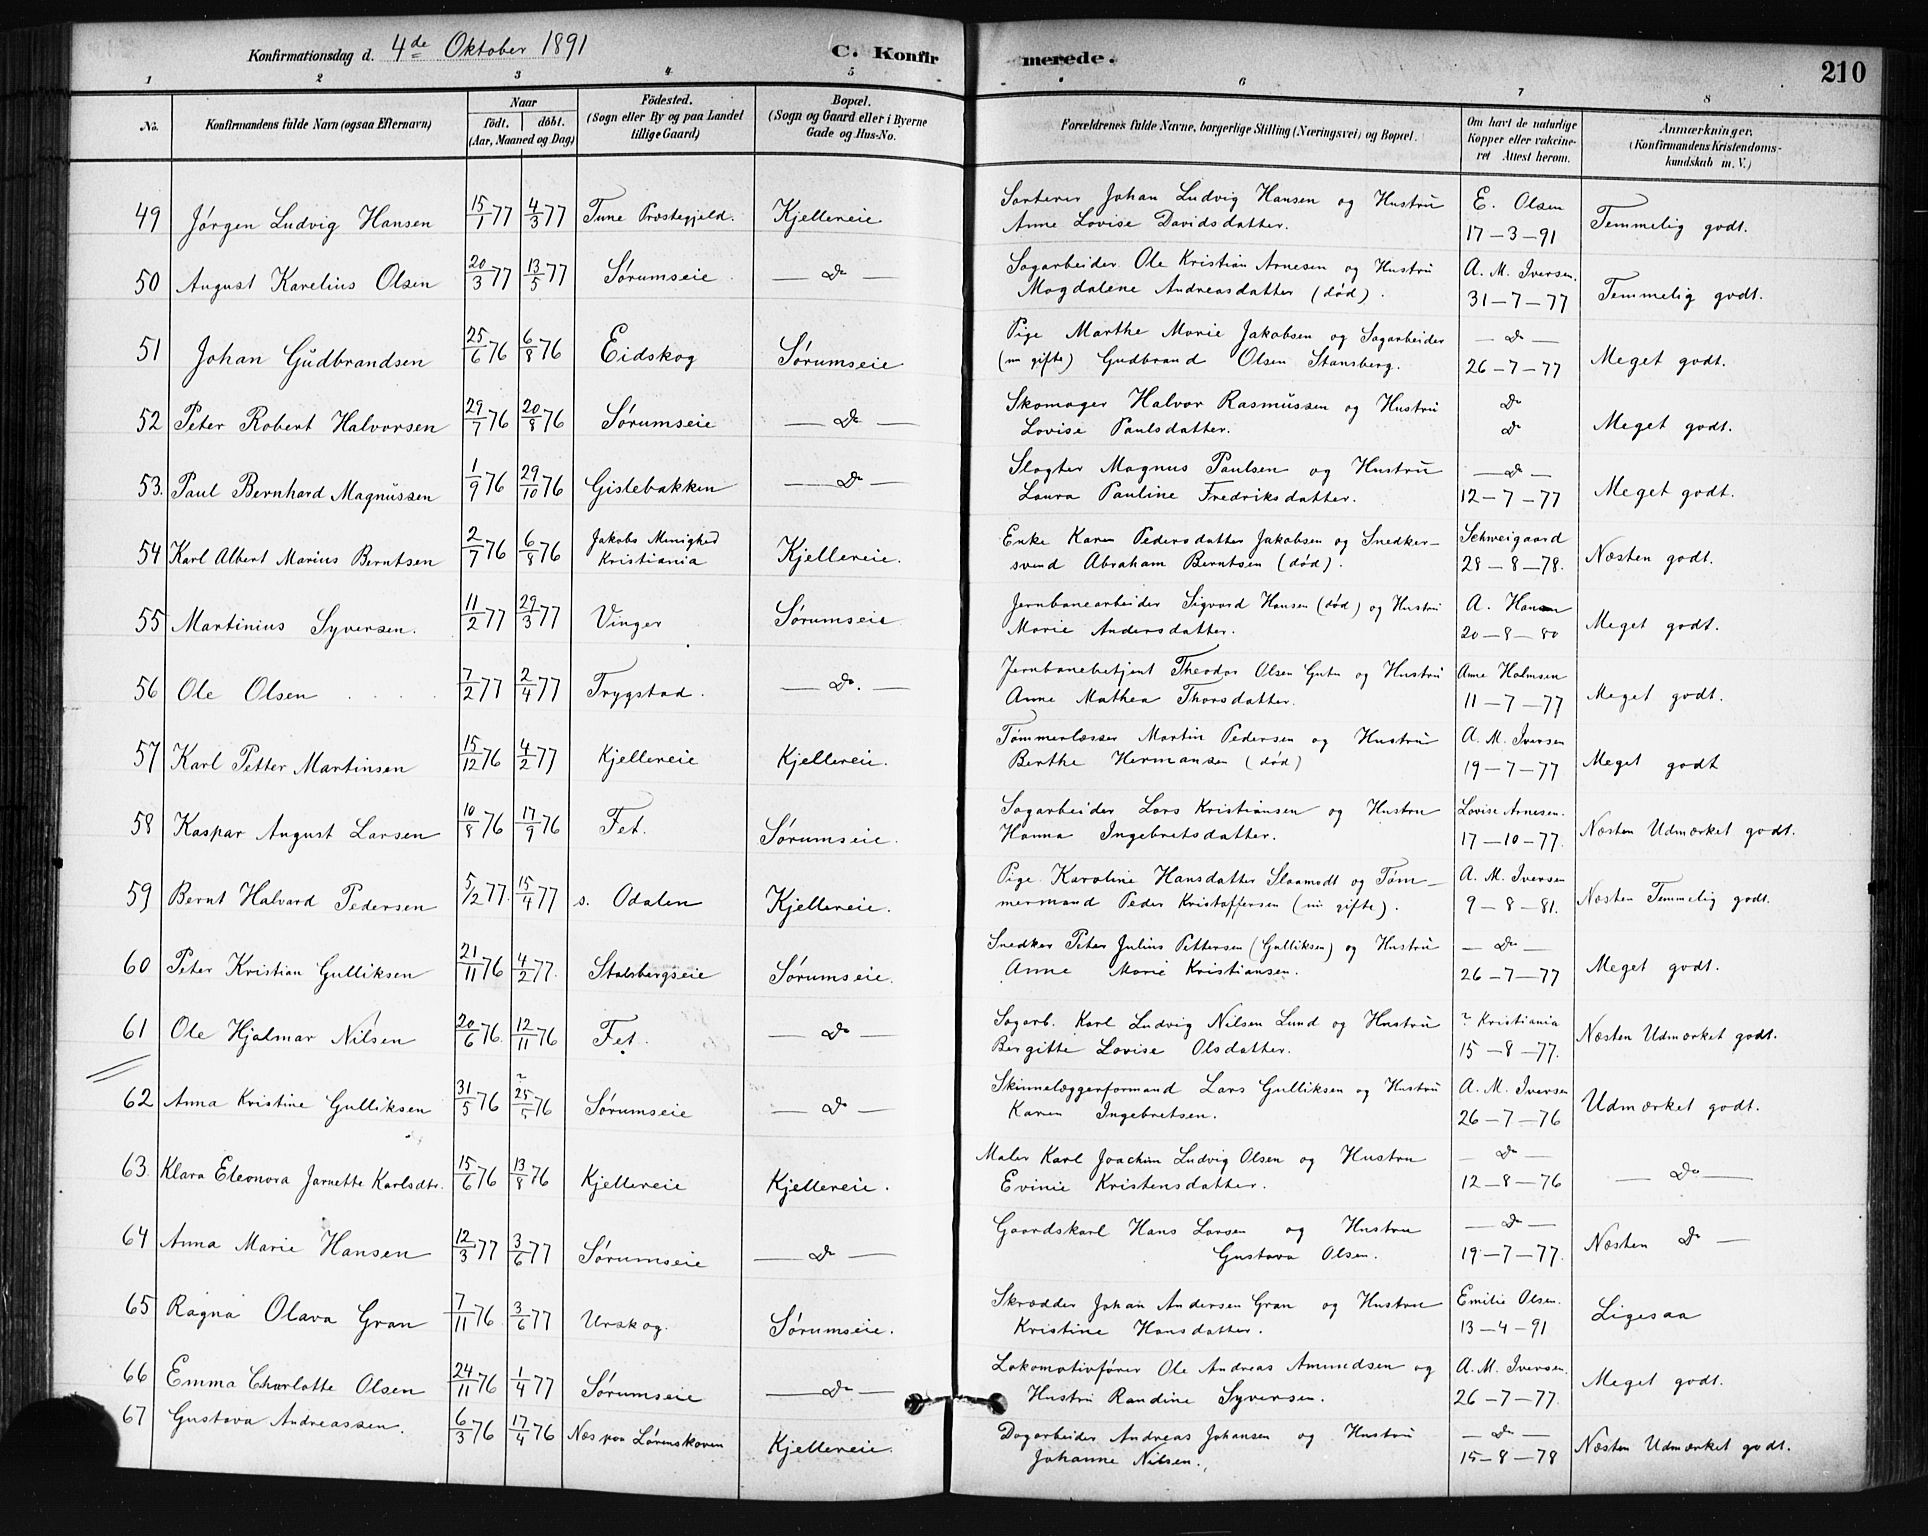 Konfirmationsdag d. 4de Oktober 1891 C. Konfirmerede. 210
1 2 3 4 5 6 7 8
No. Konfirmandens fulde Navn (ogsaa Efternavn) Naar födt. döbt. (Aar, Maaned og Dag) Födested. (Sogn eller By og paa Landet tillige Gaard) Bopæl. (Sogn og Gaard eller i Byerne Gade og Hus-No. Forældrenes fulde Navne, borgerlige Stilling (Næringsvei) og Bopæl. Om havt de naturlige Kopper eller vakcineret Attest herom. Anmærkninger. (Konfirmandens Kristendomskundskab m. V.)
49 Jørgen Ludvig Hansen 15/1 77 4/3 77 Tune Præstegjeld. Kjellereie Sorterer Johan Ludvig Hansen og Hustru E. Olsen Temmelig godt.
Anne Lovise Davidsdatter. 17-3-91
50 August Karelius Olsen 20/3 77 13/5 77 Sørumseie — Do — Sagarbeider Ole Kristian Arnesen og Hustru A. M. Iversen. Temmelig godt.
Magdalene Andreasdatter (død). 31-7-77
51 Johan Gudbrandsen 25/6 76 6/8 76 Eidskog Sørumseie Pige Marthe Marie Jakobsen og Sagarbeider — Do — Meget godt.
(nu gifte) Gudbrand Olsen Stansberg. 26-7-77
52 Peter Robert Halvorsen 29/7 76 20/8 76 Sørumseie — Do — Skomager Halvor Rasmussen og Hustru Do Meget godt.
Lovise Paulsdatter. Do
53. Paul Bernhard Magnussen 1/9 76 29/10 76 Gislebakken — Do — Slagter Magnus Paulsen og Hustru — Do — Meget godt.
Laura Pauline Fredriksdatter. 12-7-77
54 Karl Albert Marius Berntsen 2/7 76 6/8 76 Jakobs Menighed Kristiania Kjellereie. Enke Karen Pedersdatter Jakobsen og Snedker- Schweigaard Næsten godt.
svend Abraham Berntsen (død). 28-8-78.
55 Martinius Syversen. 11/2 77 29/3 77 Vinger Sørumseie Jernbanearbeider Sigvard Hansen (død) og Hustru A. Hansen Meget godt.
Marie Andersdatter. 20-8-80
56 Ole Olsen 7/2 77 2/4 77 Trygstad. — Do. — Jernbanebetjent Theodor Olsen Gutu og Hustru Anne Holmsen Meget godt.
Anne Mathea Thorsdatter. 11-7-77
57 Karl Petter Martinsen 15/12 76 4/2 77 Kjellereie Kjellereie. Tømmerlæsser Martin Pedersen og Hustru A. M. Iversen Meget godt
Berthe Hermansen (død) 19-7-77
58 Kaspar August Larsen 10/8 76 17/9 76 Fet. Sørumseie. Sagarbeider Lars Kristiansen og Hustru Lovise Arnesen. Næsten Udmærket godt.
Hanna Ingebretsdatter. 17-10-77.
59 Bernt Halvard Pedersen 5/12 77. 15/4 77 s. Odalen Kjellereie. Pige Karoline Hansdatter Slaamodt og Tøm- A. M. Iversen Næsten Temmelig godt.
mermand Peder Kristoffersen (nu gifte). 9-8-81.
60 Peter Kristian Gulliksen 21/11 76 4/2 77. Stalsbergseie Sørumseie. Snedker Peter Julius Pettersen (Gulliksen) og Hustru — Do — Meget godt.
Anne Marie Kristiansen. 26-7-77
61 Ole Hjalmar Nilsen 20/6 76. 12/11 76 Fet. — Do — Sagarb. Karl Ludvig Nilsen Lund og Hustru ? Kristiania Næsten Udmærket godt.
Bergitte Lovise Olsdatter. 15-8-77.
62 Anna Kristine Gulliksen 31/5 76 ? 25/5 76 Sørumseie — Do — Skinnelæggerformand Lars Gulliksen og Hustru A. M. Iversen Udmærket godt.
Karen Ingebretsen. 26-7-76
63. Klara Eleonora Jarnette Karlsdtr. 15/6 76 13/8 76 Kjellereie Kjellereie. Maler Karl Joachim Ludvig Olsen og Hustru — Do — — Do —
Evinie Kristensdatter. 12-8-76
64 Anna Marie Hansen 12/3 77 3/6 77 Sørumseie — Do — Gaardskarl Hans Larsen og Hustru — Do — Næsten Do —
Gustava Olsen. 19-7-77.
65 Ragna Olava Gran 7/11 76. 3/6 77 Urskog. Sørumseie. Skrædder Johan Andersen Gran og Hustru Emilie Olsen. Ligesaa
Kristine Hansdatter. 13-4-91
66 Emma Charlotte Olsen 24/11 76 1/4 77 Sørumseie — Do — Lokomotivfører Ole Andreas Amundsen og A. M. Iversen. Meget godt.
Hustru Randine Syversen. 26-7-77.
67 Gustava Andreassen. 6/3 76 17/4 76 Næs paa Lørenskoven Kjellereie. Dagarbeider Andreas Johansen og Hustru — Do — Næsten Udmærket godt.
Johanne Nilsen. 15-8-78